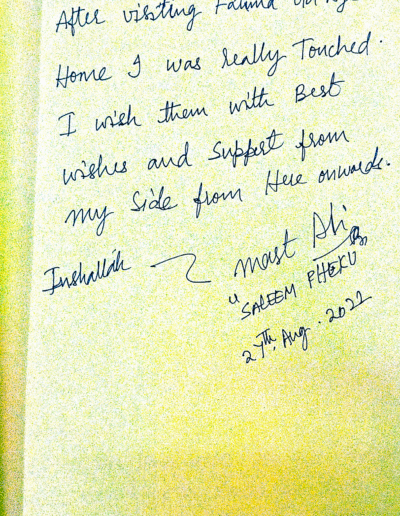 After visiting Fatima
Home I was really Touched.
I wish them with Best
wishes and Support from
my side from Here onwards.
Inshallah
Mast Ali
"SALEEM PHEKU
27th. Aug. 2022